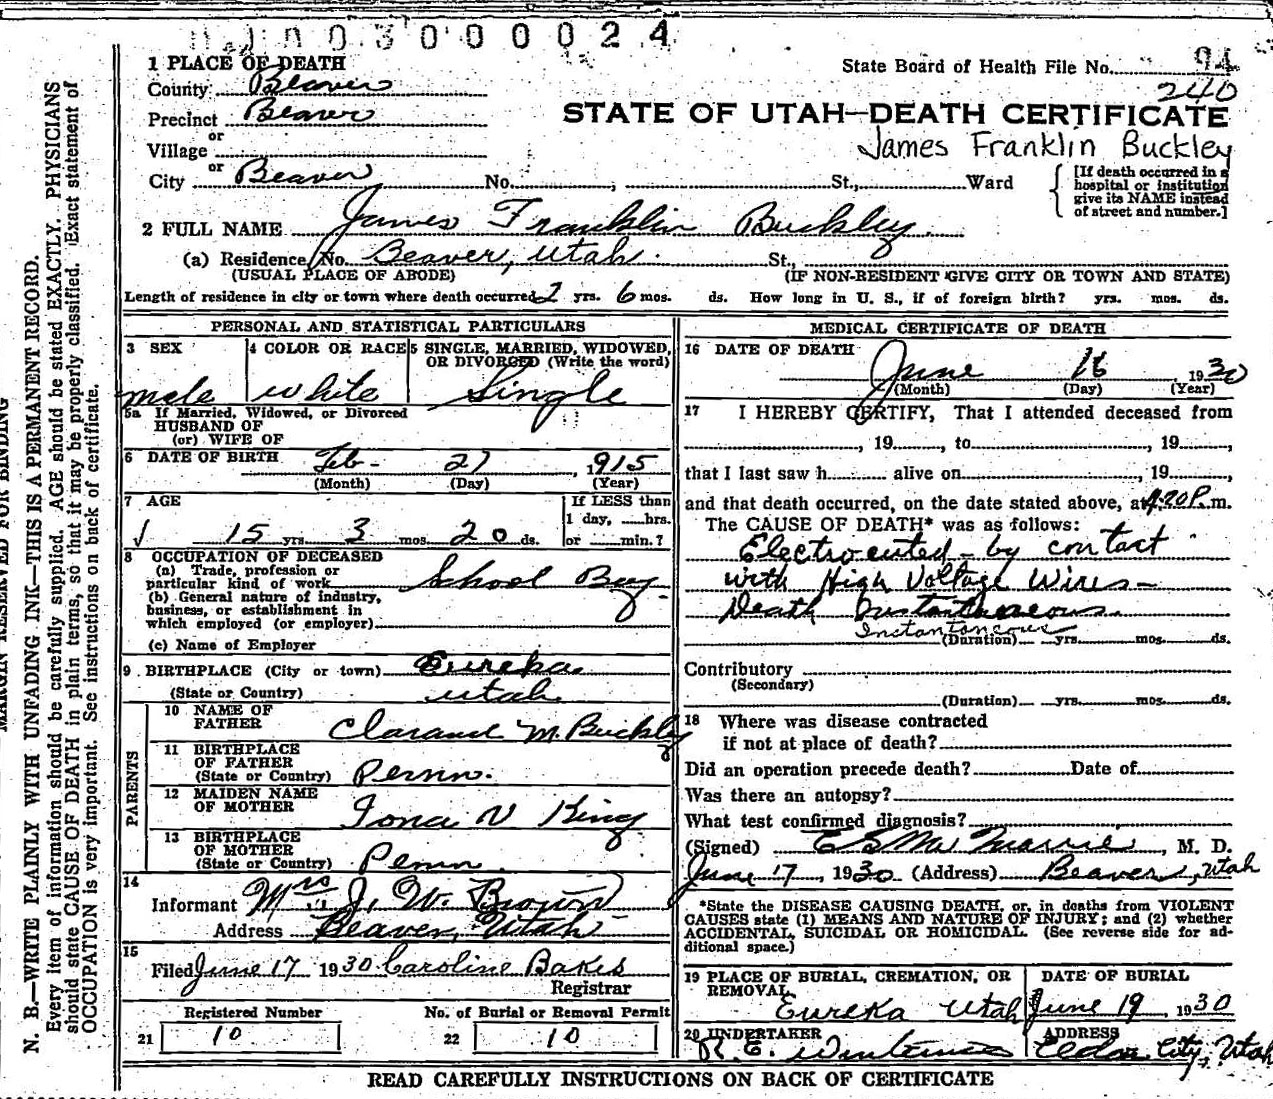 0 0 3 0 0 0 0 2 4
1 PLACE OF DEATH
State Board of Health File No. 94
240
County Beaver
Precinct Beaver
STATE OF UTAH—DEATH CERTIFICATE
or
Village
James Franklin Buckley
or
City Beaver No. ; St., Ward
[If death occurred in a
hospital or institution
give its NAME instead
of street and number.]
2 FULL NAME James Franklin Buckley
(a) Residence, No. Beaver, Utah. St.,
(USUAL PLACE OF ABODE) (IF NON-RESIDENT GIVE CITY OR TOWN AND STATE)
Length of residence in city or town where death occurred 2 yrs. 6 mos. ds. How long in U. S., if of foreign birth? yrs. mos. ds.
PERSONAL AND STATISTICAL PARTICULARS
3 SEX 4 COLOR OR RACE 5 SINGLE, MARRIED, WIDOWED,
OR DIVORCED (Write the word)
male white Single
5a If Married, Widowed, or Divorced
HUSBAND OF
(or) WIFE OF
6 DATE OF BIRTH Feb- 27, 1915
(Month) (Day) (Year)
7 AGE
If LESS than
1 day, hrs.
15 yrs 3 mos. 20 ds. or min.?
8 OCCUPATION OF DECEASED
(a) Trade, profession or
particular kind of work School Boy
(b) General nature of industry,
business, or establishment in
which employed (or employer)
(c) Name of Employer
9 BIRTHPLACE (City or town) Eureka
(State or Country) Utah
PARENTS
10 NAME OF
FATHER Clarance M. Buckley
11 BIRTHPLACE
OF FATHER
(State or Country) Penn.
12 MAIDEN NAME
OF MOTHER Iona V King
13 BIRTHPLACE
OF MOTHER
(State or Country) Penn.
14
Informant Mrs J. W. Brown
Address Beaver, Utah
15
Filed June 17 1930 Caroline Bakes
Registrar
Registered Number No. of Burial or Removal Permit
21 10 22 10
MEDICAL CERTIFICATE OF DEATH
16 DATE OF DEATH
June 16 1930
(Month) (Day) (Year)
17 I HEREBY CERTIFY, That I attended deceased from
, 19, to, 19,
that I last saw h alive on, 19,
and that death occurred, on the date stated above, at 4:20 P. m.
The CAUSE OF DEATH* was as follows:
Electrocuted - by contact
with High Voltage Wires -
Death Instantaneous.
Instantaneous
(Duration) yrs. mos. ds.
Contributory
(Secondary)
(Duration) yrs. mos. ds.
18 Where was disease contracted
if not at place of death?
Did an operation precede death? Date of
Was there an autopsy?
What test confirmed diagnosis?
(Signed) , M. D.
June 17, 1930 (Address) Beaver, Utah
*State the DISEASE CAUSING DEATH, or, in deaths from VIOLENT
CAUSES state (1) MEANS AND NATURE OF INJURY; and (2) whether
ACCIDENTAL, SUICIDAL OR HOMICIDAL. (See reverse side for ad-
ditional space.)
19 PLACE OF BURIAL, CREMATION, OR
REMOVAL
DATE OF BURIAL
Eureka Utah June 19 1930
20 UNDERTAKER ADDRESS
R. E. Cedar City, Utah
READ CAREFULLY INSTRUCTIONS ON BACK OF CERTIFICATE
MARGIN RESERVED FOR BINDING
N. B.—WRITE PLAINLY WITH UNFADING INK—THIS IS A PERMANENT RECORD.
Every item of information should be carefully supplied. AGE should be stated EXACTLY. PHYSICIANS
should state CAUSE OF DEATH in plain terms, so that it may be properly classified. Exact statement of
OCCUPATION is very important. See instructions on back of certificate.